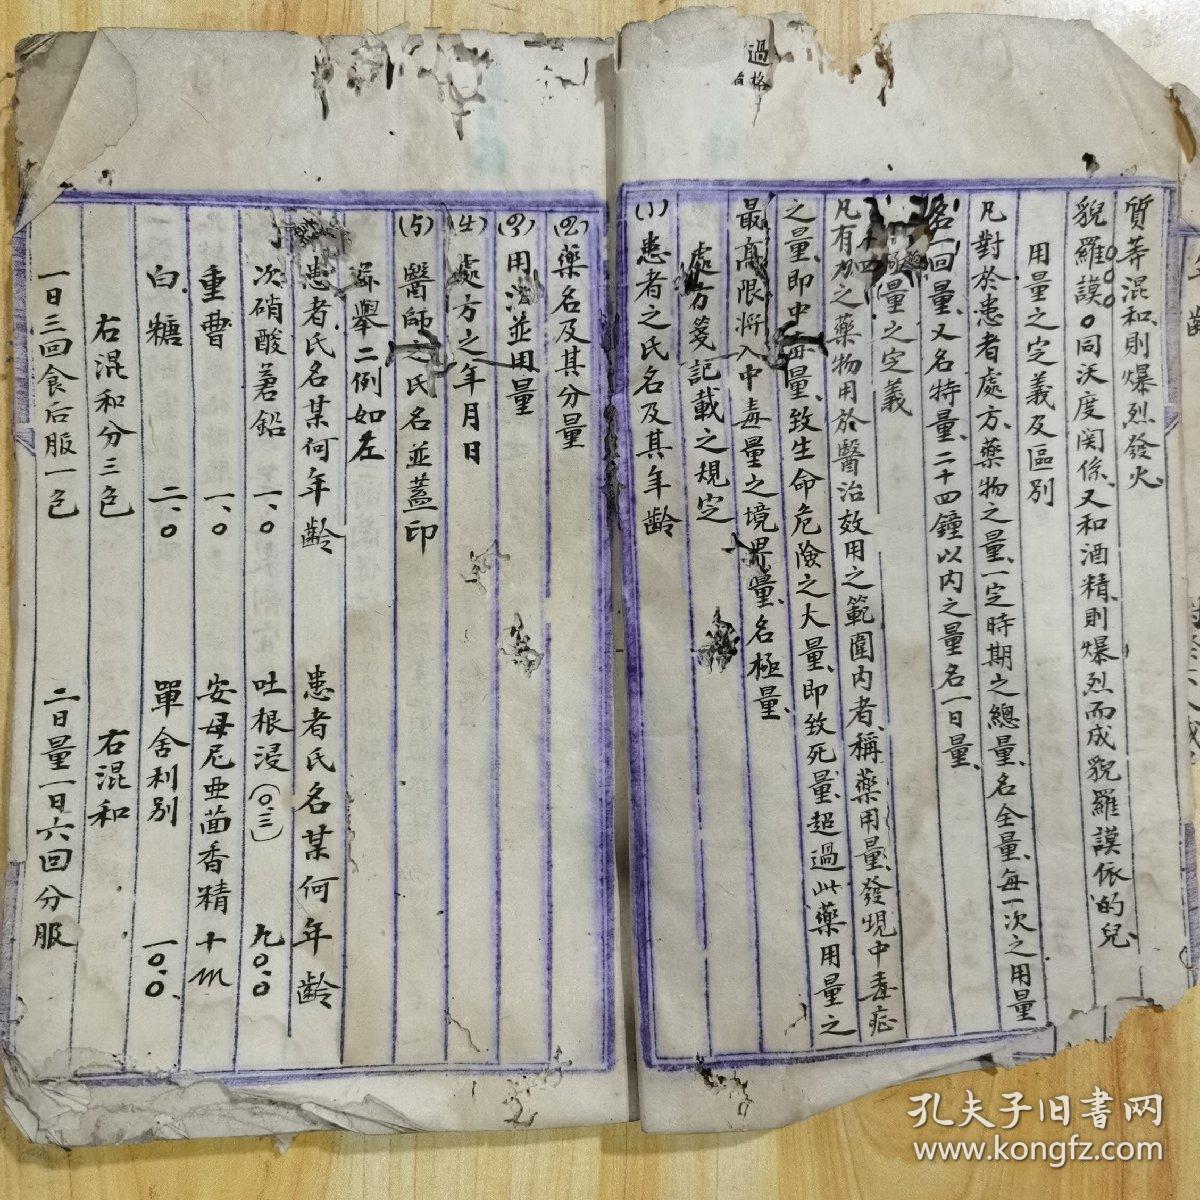 過格
質莾混和、則爆烈發火、
貌羅謨。同沃度関係、又和酒精、則爆烈而成貌羅謨依的兒、
用量之定義及區別
凡對於患者處方、藥物之量、一定時期之總量、名全量、每一次之用量
名一回量、又名特量、二十四鐘以内之量名一日量、
量之定義
凡有力之藥物用於醫治效用之範圍内者、稱藥用量、發現中毒症
之量、即中毒量、致生命危險之大量、即致死量、超過此藥用量之
最高限將入中毒量之境界量、名極量、
處方箋記載之規定
(1)患者之氏名及其年齡
(2)藥名及其分量
(3)用法並用量
(4)處方之年月日
(5)醫師之氏名並蓋印
舉二例如左
患者氏名某何年齡 患者氏名某何年齡
次硝酸蒼鉛 一、〇 吐根浸(〇、三) 九〇、〇
重曹 一、〇 安母尼亜茴香精 十m
白糖 二、〇 單舍利別 一〇、〇
右混和分三包 右混和
一日三回食后服一包 二日量一日六回分服
孔夫子旧書网
www.kongfz.com